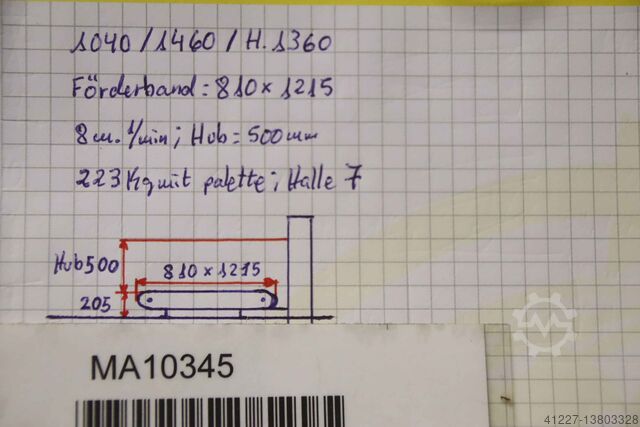 1040/1460/H.1360
Förderband = 810 x 1215
8 m. 1/min; Hub = 500 mm
223 Kg mit palette; Halle 7
Hub 500
810 x 1215
205
MA10345
41227-13803328